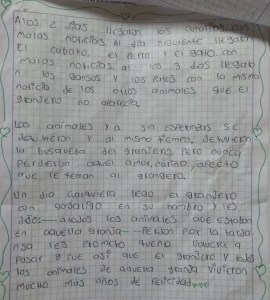 A los 2 días llegaron los conejitos con
malas noticias. Al día siguiente llegaron
El caballo, el perro y el gato con
malas noticias a los 3 días llegaro
n los gansos y los patos con la misma
noticia de los otros animales que el
granjero no aparecía.
Los animales ya sin esperanzas se
y al mismo tiempo detuvieron
la busqueda del granjero pero nunca
perdieron aquel amor, cariño, afecto
que le tenían al granjero.
Un día cualquiera llego el granjero
con en su hombro y les
dijo: a todos los animales que estaban
en aquella granja perdon por la tarda
nsa les prometo que no volvera a
pasar y fue así que el granjero y todos
los animales de aquella granja vivieron
mucho mas años de felicidad.